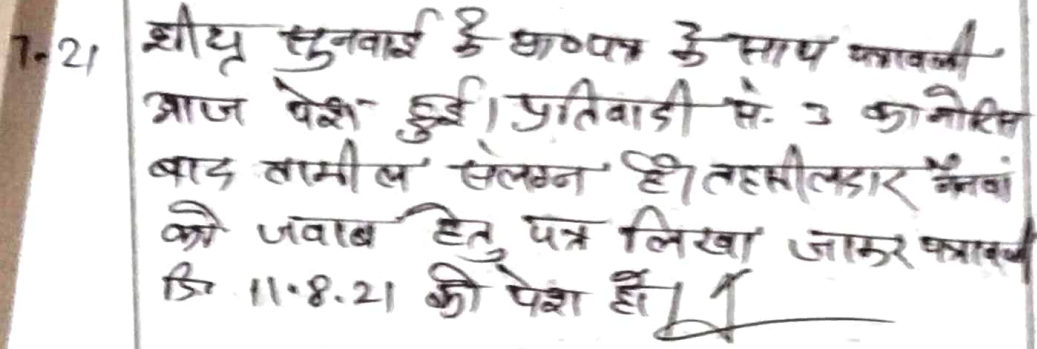 7-21 शीघ्र सुनवाई के प्रा०पत्र के साथ पत्रावली
आज पेश हुई। प्रतिवादी सं. 3 का नोटिस
बाद तामील संलग्न है। तहसीलदार नैनवां
को जवाब हेतु पत्र लिखा जाकर पत्रावली
दि 11.8.21 को पेश हो।